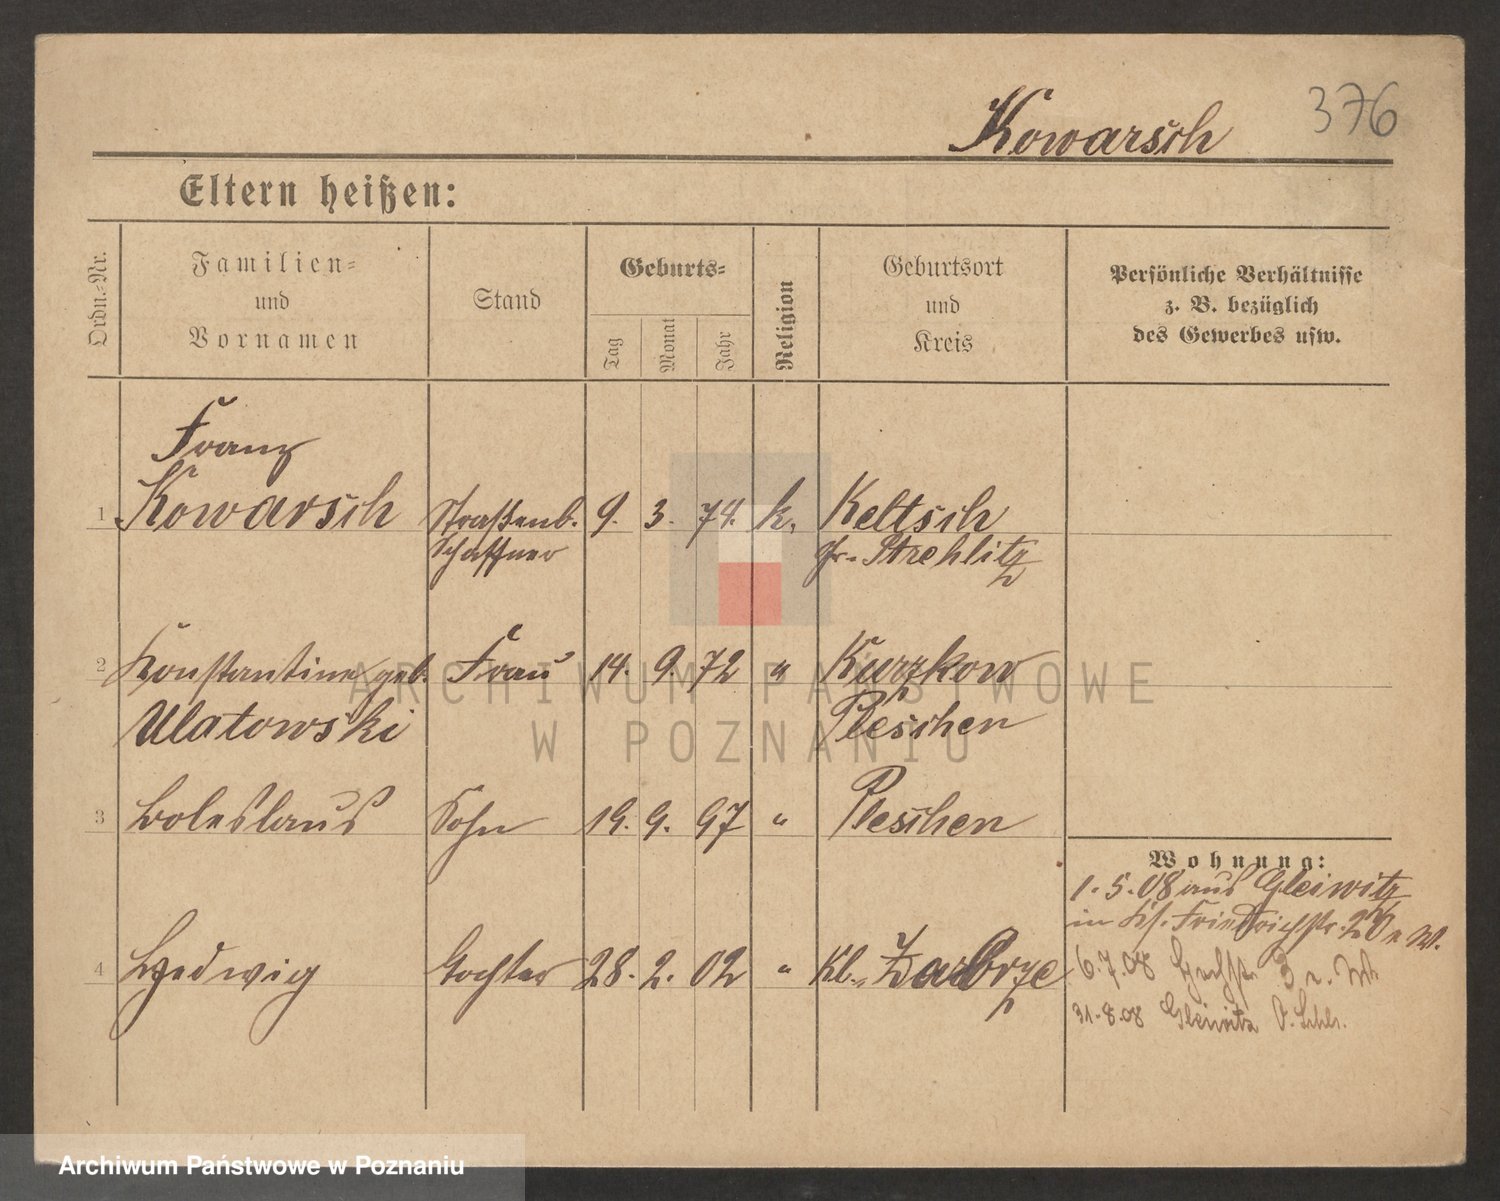 Kowarsch 376
Eltern heißen:
Ordn.-Nr.
Familien-
und
Vornamen
Stand
Geburts-
Tag
Monat
Jahr
Religion
Geburtsort
und
Kreis
Persönliche Verhältnisse
z. B. bezüglich
des Gewerbes usw.
Franz
1 Kowarsch Straßenb. 9. 3. 74. k. Keltsch
Schaffner Gr. Strehlitz
2 Konstantine geb. Frau 14. 9. 72 " Kurzkow
Ulatowski Pleschen
3 Boleslaus Sohn 19. 9. 97 " Pleschen
Wohnung:
1.5.08 aus Gleiwitz
in Friedrichstr. 20 W.
4 Hedwig Tochter 28. 2. 02 " Kl. Zabrze
6.7.08 3
31.8.08 Gleiwitz
ARCHIWUM PAŃSTWOWE
W POZNANIU
Archiwum Państwowe w Poznaniu